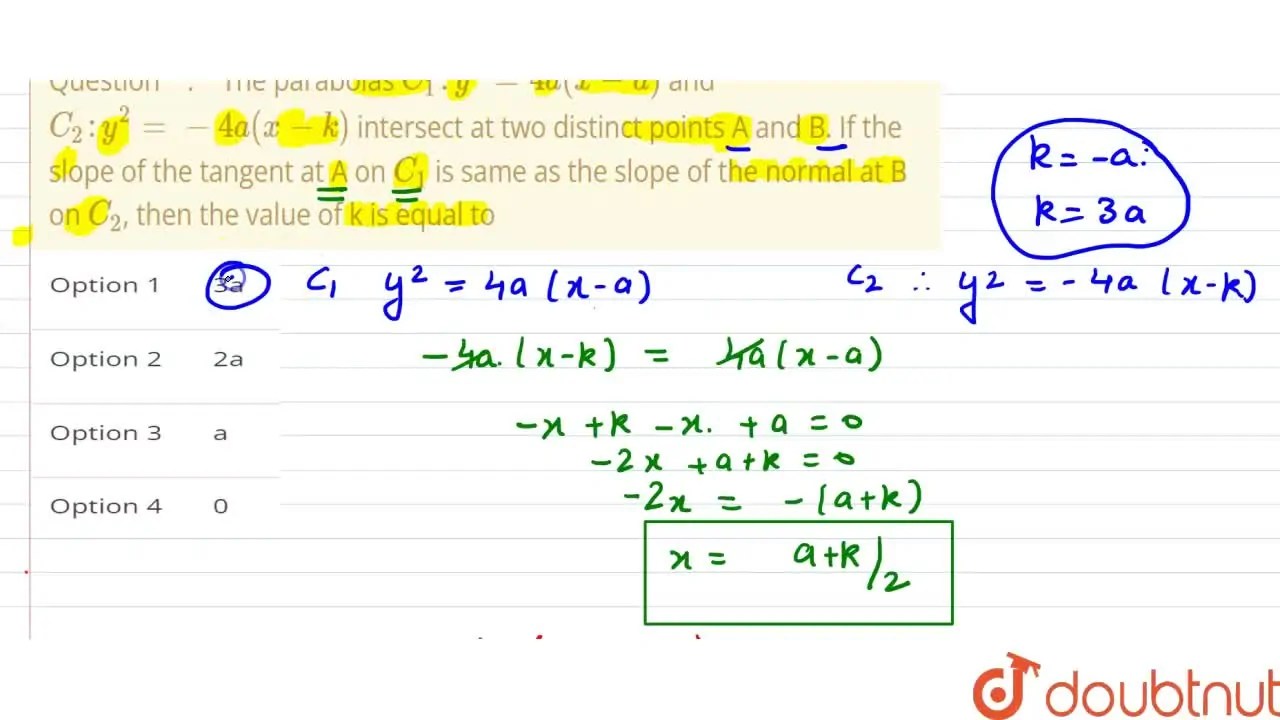 Question : The parabolas C₁ : y² = 4a(x − a) and
C₂ : y² = −4a(x − k) intersect at two distinct points A and B. If the
slope of the tangent at A on C₁ is same as the slope of the normal at B
on C₂, then the value of k is equal to
k = -a.
k = 3a
Option 1 3a
C₁ y² = 4a (x-a)
C₂ ∴ y² = -4a (x-k)
Option 2 2a
-4a. (x-k) = 4a (x-a)
Option 3 a
-x + k - x. + a = 0
-2x + a + k = 0
Option 4 0
-2x = - (a+k)
x = a+k/2
doubtnut